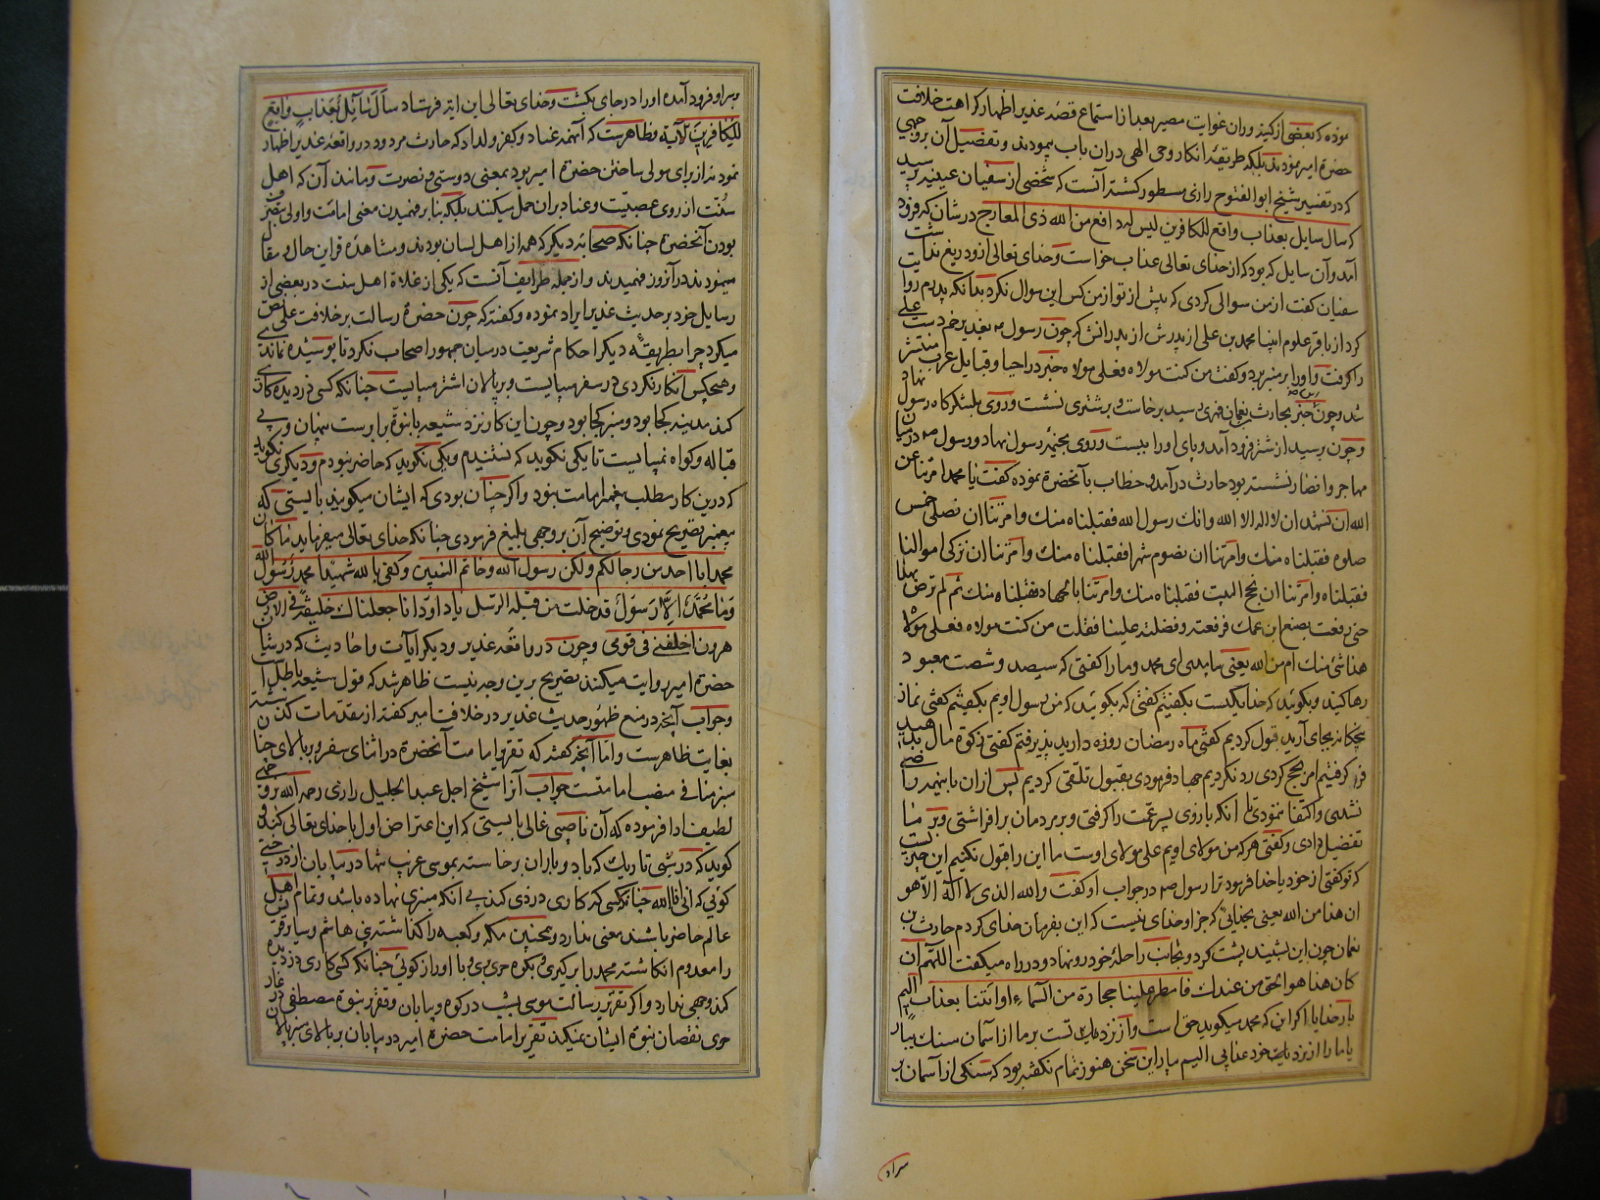 نموده که بعضی از کینه وران غوایت مصیر بعد از استماع قصه غدیر اظهار کراهت خلافت
حضرة امیر نمودند بلکه طریقه انکار وحی الهی دران باب پیمودند و تفصیل آن بروجهی
که در تفسیر شیخ ابوالفتوح رازی مسطور کشته آنست که شخصی از سفیان عیینه پرسید
که سال سایل بعذاب واقع للکافرین لیس له دافع من الله ذی المعارج در شان که فرود
آمد و آن سایل که بود که از خدای تعالی عذاب خواست و خدای تعالی ازو دریغ نداشت
سفیان کفت از من سوالی کردی که پیش از تو از من کس این سوال نکرد بدانکه پدرم روایت
کرد از باقر علوم انبیا محمد بن علی از پدرش از پدرانش که چون رسول بغدیر خم دست علی
را کرفت و او را بر منبر برد و کفت من کنت مولاه فعلی مولاه خبر در احیا و قبایل عرب منتشر
شد و چون خبر بحارث نعمان فهری رسید برخاست و بر شتری نشست و روی بلشکرکاه رسول نهاد
و چون برسید از شتر فرود آمد و پای او را ببست و روی بخیمه رسول نهاد و رسول در میان
مهاجر و انصار نشسته بود حارث درآمد و خطاب بآنحضرة نموده کفت یا محمد امرتنا عن
الله ان نشهد ان لا اله الا الله وانك رسول الله فقبلناه منك وامرتنا ان نصلی خمس
صلوه فقبلناه منك وامرتنا ان نصوم شهرا فقبلناه منك وامرتنا ان نزکی اموالنا
فقبلناه وامرتنا ان نحج البیت فقبلناه منك وامرتنا بالجهاد فقبلناه منك ثم لم ترض بهذا
حتی رفعت بضبع ابن عمك فرفعته وفضلته علینا فقلت من کنت مولاه فعلی مولاه
هذا شئ منك ام من الله یعنی بیامدی ای محمد و ما را کفتی که سیصد و شصت معبود
رها کنید و بکویید که خدا یکیست بکفتیم کفتی که بکویید که من رسول اویم بکفتیم کفتی نماز
پنجکانه بجای آرید قبول کردیم کفتی ماه رمضان روزه دارید پذیرفتم کفتی زکوة مال بدهید
فرا کرفتیم امر بحج کردی رد نکردیم جهاد فرمودی بقبول تلقی کردیم پس ازان باینهمه راضی
نشدی و اکتفا ننمودی تا آنکه بازوی پسر عمت را کرفتی و بر مردمان برافراشتی و بر ما
تفضیل دادی و کفتی هر که من مولای اویم علی مولای اوست ما این را قبول نکنیم این چیزیست
که تو کفتی از خود یا خدا فرمود ترا رسول در جواب او کفت والله الذی لا اله الا هو
ان هذا من الله یعنی بخدایی که جز او خدای نیست که این بفرمان خدای کردم حارث بن
نعمان چون این بشنید پشت کرد و بجانب راحله خود رو نهاد و در راه میکفت اللهم ان
کان هذا هو الحق من عندك فامطر علینا حجارة من السماء او ائتنا بعذاب الیم
بار خدایا اکر این که محمد میکوید حق است و از نزدیك تست بر ما از آسمان سنك ببار
یا ما را از نزدیك خود عذابی الیم بیار این سخن هنوز تمام نکفته بود که سنکی از آسمان بر
سراو
بر سر او فرود آمده او را در جای بکشت و خدای تعالی این ایة فرستاد سأل سائل بعذاب واقع
للکافرین الآیة و ظاهرست که آنهمه عناد و کفر و لداد که حارث مردود در واقعه غدیر اظهار
نمود نه از برای مولی ساختن حضرة امیر بود بمعنی دوستی و نصرت و مانند آن که اهل
سنت از روی عصبیت و عناد بران حمل میکنند بلکه بنا بر فهمیدن معنی امامت و اولی بتصرف
بودن آنحضرة چنانکه صحابه دیکر که همه از اهل لسان بودند و مشاهده قراین حال و مقال
مینمودند در آنروز فهمیدند و از جمله طرایف آنست که یکی از غلاة اهل سنت در بعضی از
رسایل خود بر حدیث غدیر ایراد نموده و کفته که چون حضرة رسالت بر خلافت علی نص
میکرد چرا بطریقه دیکر احکام شریعت در میان جمهور اصحاب نکرد تا پوشیده نماندی
و هیچکس انکار نکردی در سفر میبایست و بر پالان اشتر میبایست چنانکه کسی دزدیده کاری
کند مدینه کجا بود و منبر کجا بود و چون این کار نزد شیعه با نبوة برابرست پنهان و بی
قباله و کواه نمیبایست تا یکی نکوید که نشنیدم و یکی نکوید که حاضر نبودم و دیکری نکوید
که درین کار مطلب پیغمبر ابهامت بود و اکر چنان بودی که ایشان میکویند بایستی که
پیغمبر تصریح نمودی و توضیح آن بروجهی بلیغ فرمودی چنانکه خدای تعالی میفرماید ما کان
محمد ابا احد من رجالکم ولکن رسول الله وخاتم النبیین وکفی بالله شهیدا محمد رسول الله
وما محمد الا رسول قد خلت من قبله الرسل یا داود انا جعلناك خلیفة فی الارض
هرون اخلفنی فی قومی و چون در واقعه غدیر و دیکر آیات و احادیث که در شأن
حضرة امیر روایت میکنند تصریح برین وجه نیست ظاهر شد که قول شیعه باطل است
و جواب آنچه در منع ظهور حدیث غدیر در خلافت امیر کفته از مقدمات کذشته
بغایت ظاهرست و اما آنچه کفته که تقریر امامت آنحضرة در اثنای سفر و بر بالای چنان
منبر منافی منصب امامتست جواب آنرا شیخ اجل عبدالجلیل رازی رحمه الله بروجهی
لطیف ادا فرموده که آن ناصبی غالی بایستی که این اعتراض اول با خدای تعالی کند و
کوید که در شبی تاریك که باد و باران برخاسته بموسی غریب تنها در بیابان از درختی
کویی که انی انا الله چنانکه کسی که کاری دزدی کند بی آنکه منبری نهاده باشد و تمام اهل
عالم حاضر باشند معنی ندارد و همچنین مکه و کعبه را کذاشته بنی هاشم و سایر قریش
را معدوم انکاشته محمد را برکیری و بکوه حری بری و با او راز کویی چنانکه کسی کاری دزدیده
کند وجهی ندارد و اکر تقریر رسالت موسی بشب در کوه و بیابان و تقریر نبوة مصطفی در غار
حری نقصان نبوة ایشان نمیکند تقریر امامت حضرة امیر در بیابان بر بالای منبر پالان